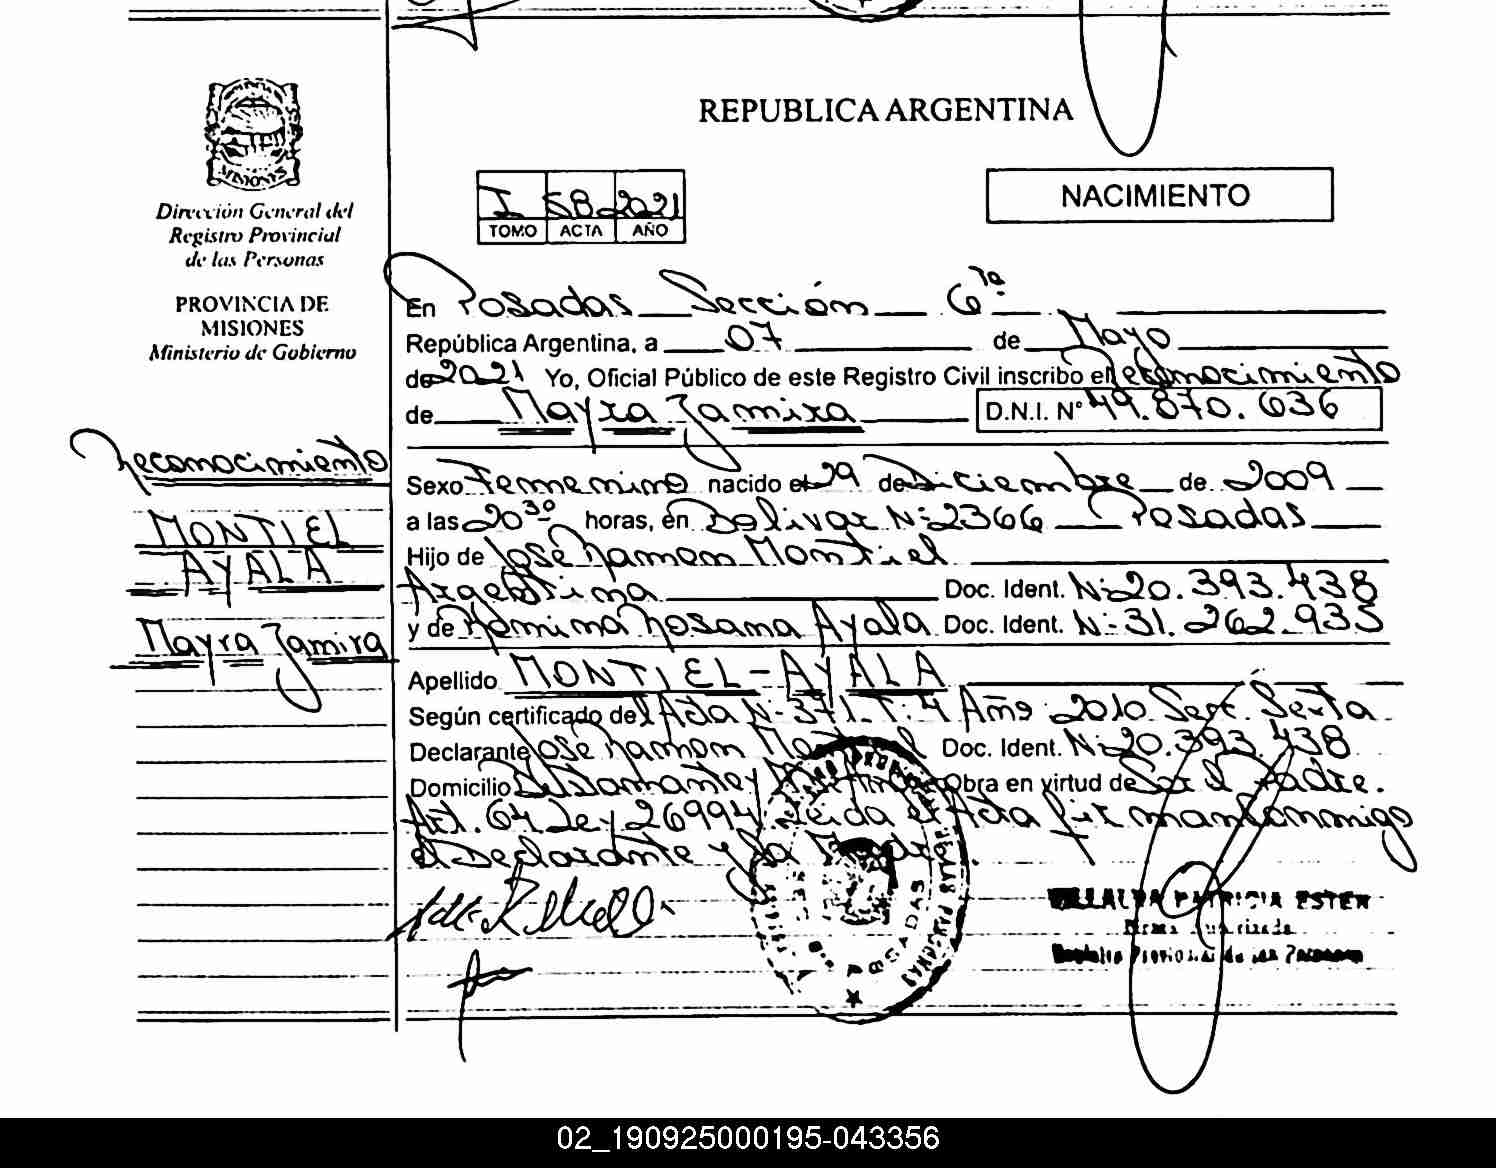 REPUBLICA ARGENTINA
MISIONES
Dirección General del
Registro Provincial
de las Personas
PROVINCIA DE
MISIONES
Ministerio de Gobierno
I 58 2021
TOMO ACTA AÑO
NACIMIENTO
En Posadas Sección 6ta
República Argentina, a 07 de Mayo
de 2021 Yo, Oficial Público de este Registro Civil inscribo el Reconocimiento
de Mayra Jamira D.N.I. N° 49.870.636
Reconocimiento
MONTIEL
AYALA
Mayra Jamira
Sexo Femenino nacido el 29 de Diciembre de 2009
a las 20 30 horas, en Bolivar N: 2366 Posadas
Hijo de José Ramon Montiel
Argentina Doc. Ident. N: 20.393.438
y de Romina Rosana Ayala Doc. Ident. N: 31.262.935
Apellido MONTIEL-AYALA
Según certificado del Acta N: 371. T: 4 Año 2010 Secc. Sexta
Declarante José Ramon Doc. Ident. N: 20.393.438
Domicilio Obra en virtud de Ser el Padre.
Art. 64 Ley 26994 Leida el Acta firman conmigo
el Declarante y la Madre.
POSADAS
VILLALVA PATRICIA ESTER
Firma Autorizada
Registro Provincial de las Personas
02_190925000195-043356